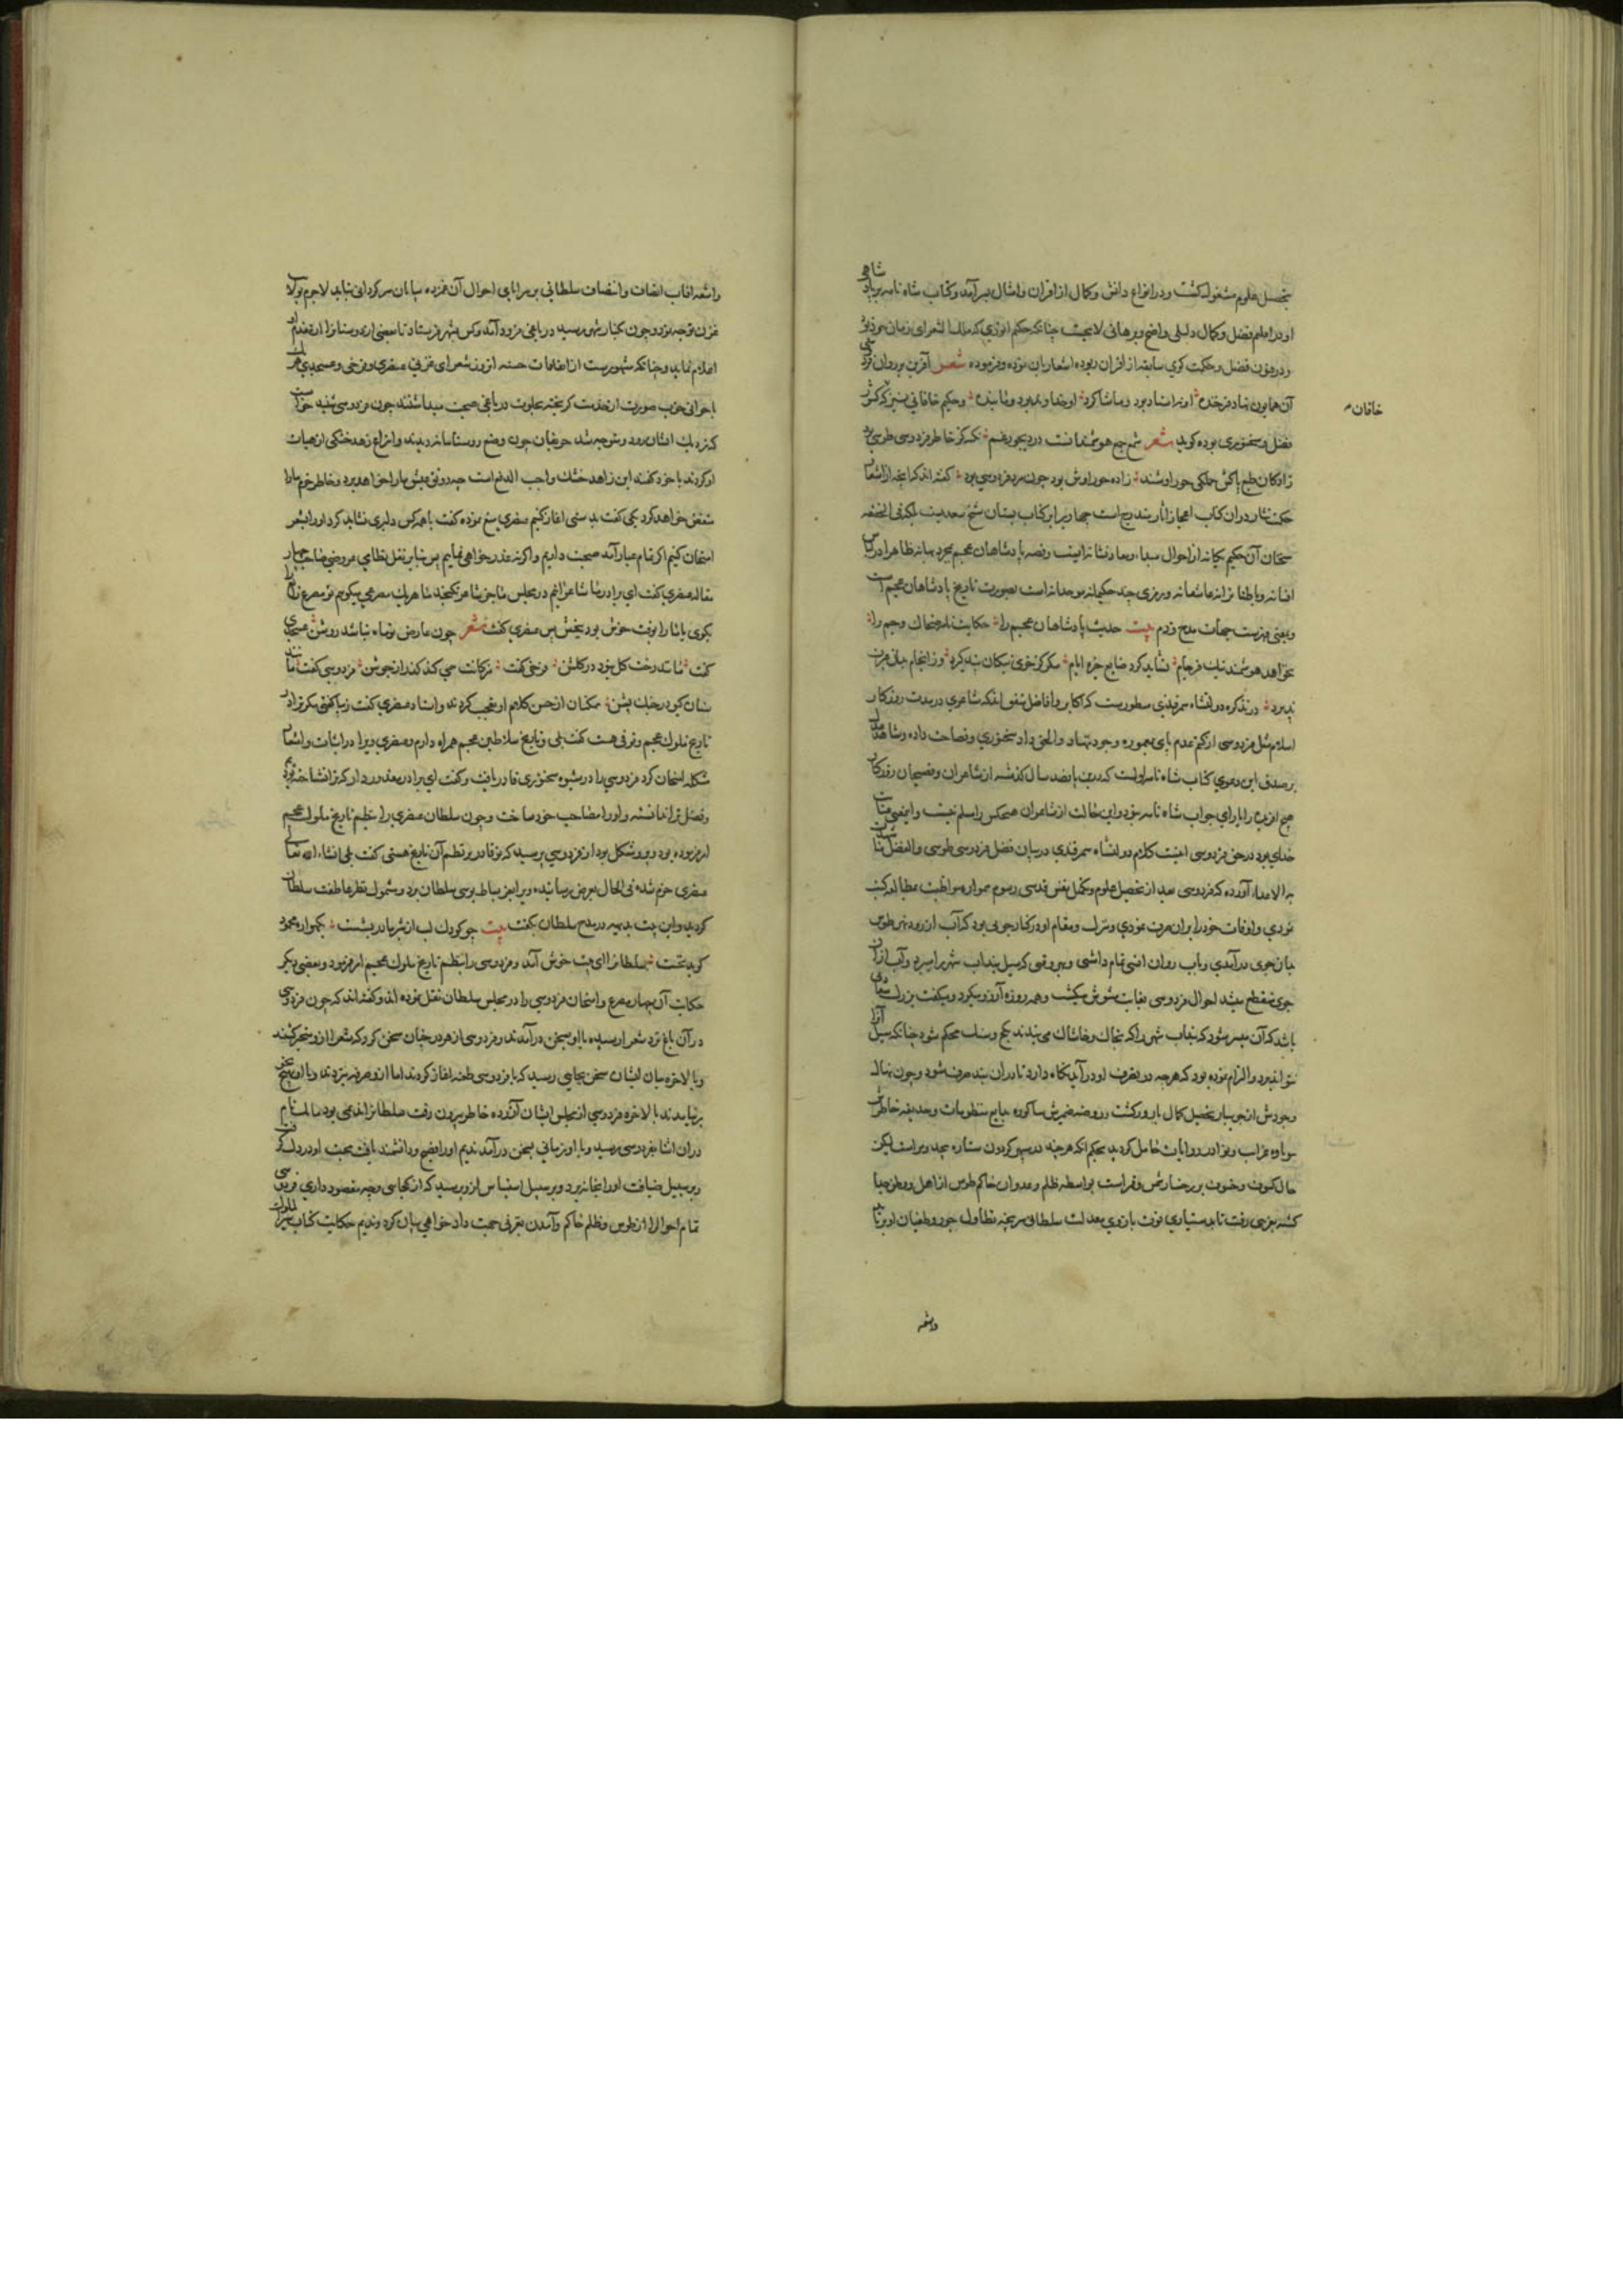 بتحصیل علوم مشغول کشت و در انواع دانش و کمال از اقران و امثال بسر آمد و کتاب شاه نامه بر پادشاهی
او در اقلیم فضل و کمال دلیلی واضح و برهانی لایحست چنانکه حکیم انوری که ملک الشعرای زمان خود بود
و در فنون فضل و حکمت کوی سابقه از اقران ربوده اشعار بان نموده و فرموده شعر آفرین بر روان فردوسی
آن همایون نهاد فرخنده او نه استاد بود و ما شاکرد او خداوند بود و ما بنده و حکیم خاقانی نیز که
خاقان
فضل و سخنوری بوده کوید شعر شمع جمع هوشمندانست در دیجور غم نکته کز خاطر فردوسی طوسی بود
زادکان طبع پاکش جملکی حوراوشند زاده حوراوش بود چون مرد فردوسی بود کفته اند که آنچه از اشعار
حکمت شعار در آن کتاب اعجاز آثار مندرج است چهار برابر کتاب بستان شیخ سعدیست لیکن فی الحقیقه
سخنان آن حکیم یکانه از احوال مبداء و معاد نشانه ایست و قصه پادشاهان عجم مجرد بهانه ظاهرا در لباس
افسانه و باطنا ترانه عاشقانه و رمزی چند حکیمانه موحدانه است بصورت تاریخ پادشاهان عجم است
و بمعنی فهرست جهات مدح و ذم بیت حدیث پادشاهان عجم را حکایت نامه ضحاک و جم را
بخواهد هوشمند نیک فرجام نشاید کرد ضایع خیره ایام مکر کز خوی نیکان پند کیرد و ز انجام بدان عبرت
پذیرد در تذکره دولتشاه سمرقندی مسطورست که اکابر و افاضل متفق اند که شاعری در مدت روزکار
اسلام مثل فردوسی از کتم عدم پای بمعموره وجود ننهاد و الحق داد سخنوری و فصاحت داده و شاهد عدل
بر صدق این دعوی کتاب شاه نامه اوست که درین پانصد سال کذشته از شاعران و فصیحان روزکار
هیچ آفریده را یارای جواب شاه نامه نبود و این حالت از شاعران هیچکس را مسلم نیست و این معنی عنایت
خدای بود در حق فردوسی اینست کلام دولتشاه سمرقندی در بیان فضل فردوسی طوسی و الفضل ما شهدت
به الاعداء آورده که فردوسی بعد از تحصیل علوم و تکمیل نفس قدسی رسوم همواره مواظبت بمطالعه کتب
نمودی و اوقات خود را بر آن صرف نمودی و منزل و مقام او در کنار جویی بود که آب از رود شهر طوس
بان جوی درآمدی و باب روان انسی تمام داشتی و هر وقتی که سیل بنداب شهر را میبرد و آب از آن
جوی منقطع میشد احوال فردوسی بغایت مشوش میکشت و همه روزه آرزو میکرد و میکفت بزرک سعادتی
باشد که آن میسر شود که بنداب شهر را که بخاک و خاشاک می بندند بکچ و سنک محکم شود چنانکه سیل آنرا
نتواند برد و الزام نموده بود که هر چه در تصرف او درآید نکاه دارد تا در آن بند صرف شود و چون نهال
وجودش از جویبار تحصیل کمال بارور کشت و روضه ضمیرش با کوره بدایع منظومات و حدیقه خاطرش
بمیوه غرایب و نوادر روایات حامل کردید بحکم آنکه هر چند در سپهر کردون ستاره بیحد و مرست لیکن
حال کسوف و خسوف بر رخسار شمس و قمر است بواسطه ظلم و عدوان حاکم طوس از اهل و وطن جدا
کشته بغزنین رفت تا بدستیاری قوت بازوی معدلت سلطانی سر پنجه تطاول جور و طغیان او برتابد
واشعه
واشعه آفتاب انصاف و انتصاف سلطانی بر مرایای احوال آن غمزده بیابان سرکردانی بتابد لاجرم بولایت
غزنین توجه نمود و چون بکنار شهر رسید در باغی فرود آمد و کس بشهر فرستاد تا بعضی از دوستانرا از مقدم او
اعلام نماید و چنانکه مشهورست از اتفاقات حسنه آنروز شعرای غزنی عنصری و فرخی و عسجدی هر یک
با جوانی خوب صورت از خدمت کریخته بخلوت در باغی صحبت میداشتند چون فردوسی شنید خواست
که نزدیک ایشان رود و متوجه شد حریفان چون وضع روستایانه دیدند و انواع زهد خشکی از هیات
او کردند با خود کفتند این زاهد خشک واجب الدفع است چه رونق عیش ما را خواهد برد و خاطر خرم ما را
منغص خواهد کرد یکی کفت بدمستی آغاز کنیم عنصری منع نموده کفت با هر کس دلیری نشاید کرد او را بشعر
امتحان کنیم اکر تمام عیار آمد صحبت داریم و اکر نه عذر خواهی نماییم پس بنابر نقل نظامی عروضی صاحب چهار
مقاله عنصری کفت ای برادر ما شاعرانیم در مجلس ما جز شاعر نکنجد ما هر یک مصرعی میکوییم تو مصرع رابع را
بکوی یا ما را بوقت خوش خود ببخش پس عنصری کفت شعر چون عارض تو ماه نباشد روشن عسجدی
کفت مانند رخت کل نبود در کلشن فرخی کفت مژکانت همی کذر کند از جوشن فردوسی کفت مانند
سنان کیو در جنک پشن همکنان از حسن کلام او تعجب کردند و استاد عنصری کفت زیبا کفتی مکر ترا در
تاریخ ملوک عجم وقوفی هست کفت بلی و تاریخ سلاطین عجم همراه دارم و عنصری ویرا در ابیات و اشعار
مشکله امتحان کرد فردوسی را در شیوه سخنوری قادر یافت و کفت ای برادر معذور دار که ترا نشناخته بودیم
و فضل ترا ندانسته و او را مصاحب خود ساخت و چون سلطان عنصری را بنظم تاریخ ملوک عجم
امر فرموده بود و برو مشکل بود از فردوسی پرسید که تو قادر بر نظم آن تاریخ هستی کفت بلی انشاء الله تعالی
عنصری خرم شده فی الحال بعرض رسانیده ویرا بعز بساط بوسی سلطان برد و مشمول نظر عاطفت سلطان
کردید و این بیت بدیهه در مدح سلطان بکفت بیت چو کودک لب از شیر مادر بشست بکهواره محمود
کوید نخست سلطانرا این بیت خوش آمد و فردوسی را بنظم تاریخ ملوک عجم امر فرمود و بعضی دیکر
حکایت آن چهار مصرع و امتحان فردوسی را در مجلس سلطان نقل نموده اند و کفته اند که چون فردوسی
در آن باغ نزد شعرا رسیده با او بسخن درآمدند و فردوسی از هر در چنان سخن کرد که شعرا ازو متحیر کشتند
و بالاخره میان ایشان سخن بجایی رسید که با فردوسی طعنه آغاز کردند اما ازو صرفه نبردند و با او بهیچ نحو
برنیامدند بالاخره فردوسی از مجلس ایشان آزرده خاطر بیرون رفت سلطانرا ندیمی بود ماهک نام
در آن اثنا بفردوسی رسید و با او زمانی بسخن درآمد ندیم او را فصیح و دانشمند یافت محبت او در دل کرفت
و بر سبیل ضیافت او را بخانه برد و بر سبیل استیناس ازو پرسید که از کجایی و چه مقصود داری فردوسی
تمام احوال را از طوس و ظلم حاکم و آمدن بغزنی بجهت داد خواهی بیان کرد و ندیم حکایت کتاب سیر الملوک